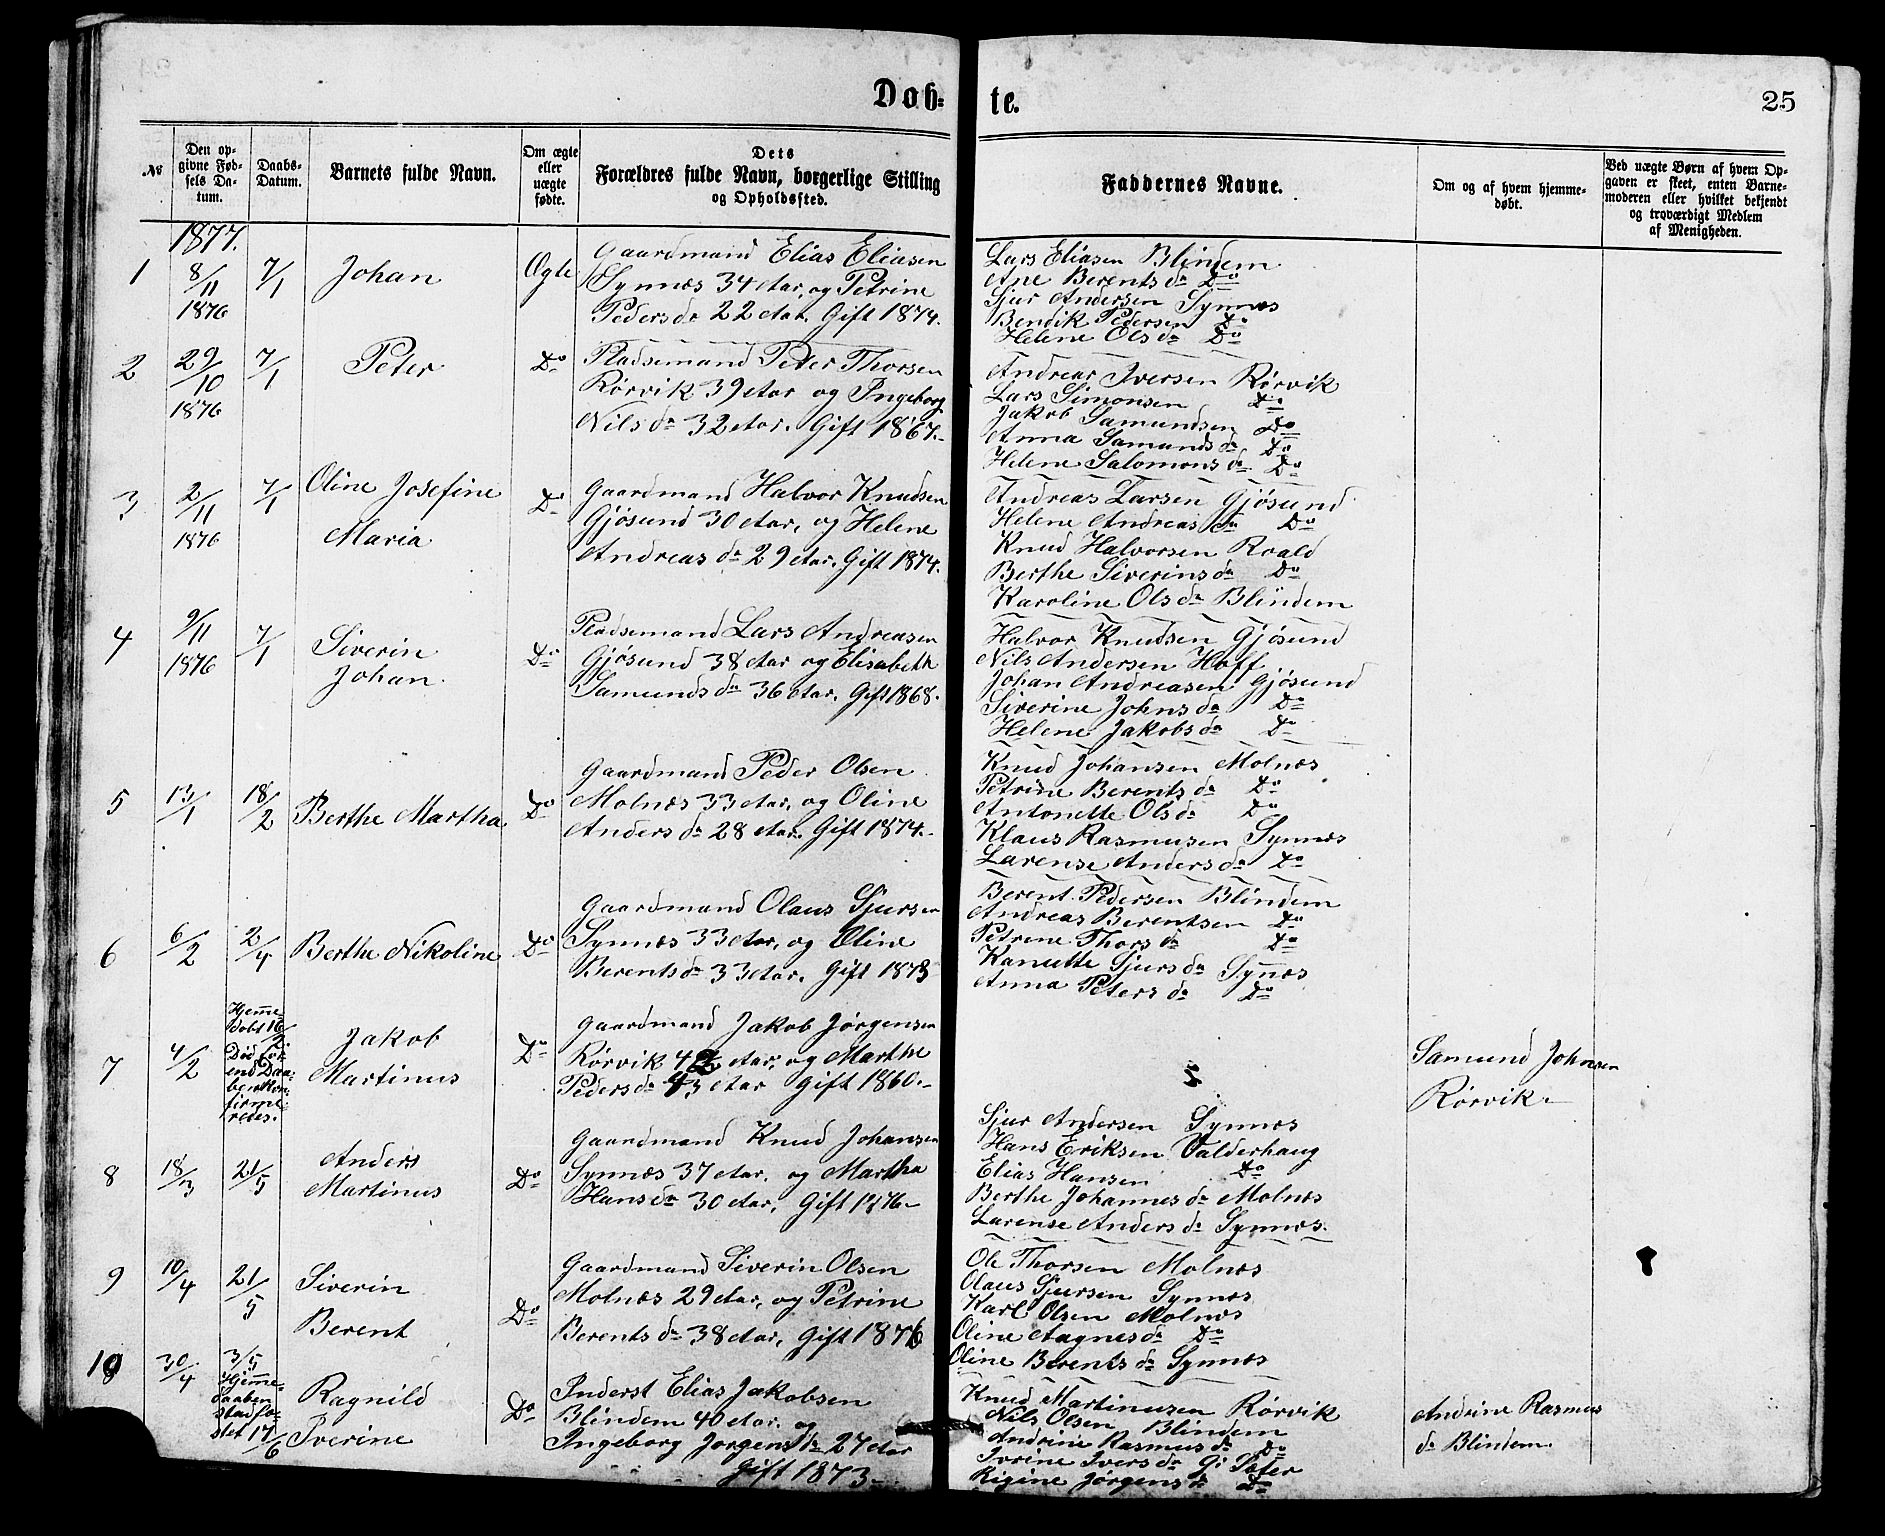 Døb-
te.
25
№
Den op-
givne Fød-
sels Da-
tum.
Daabs-
Datum.
Barnets fulde Navn.
Om ægte
eller
uægte
fødte.
Dets
Forældres fulde Navn, borgerlige Stilling
og Opholdssted.
Faddernes Navne.
Om og af hvem hjemme-
døbt.
Ved uægte Børn af hvem Op-
gaven er skeet, enten Barne-
moderen eller hvilket bekjendt
og troværdigt Medlem
af Menigheden.
1877.
1
8/11
1876
7/1
Johan
Ægte
Gaardmand Elias Eliasen
Synnæs 34 Aar, og Petrine
Pedersda 22 Aar. Gift 1874.
Lars Eliasen Blindem
Ane Berentsda Do
Sjur Andersen Synnæs
Bendik Pedersen Do
Helene Olsda Do
2
29/10
1876
7/1
Peter
Do
Pladsemand Peter Thorsen
Rørvik 39 Aar og Ingeborg
Nilsda 32 Aar. Gift 1867.
Andreas Iversen Rørvik
Lars Simonsen Do
Jakob Samundsen Do
Anna Samundsda Do
Helene Salomonsda Do
3
2/11
1876
7/1
Oline Josefine
Maria
Do
Gaardmand Halvor Knudsen
Gjøsund 30 Aar, og Helene
Andreasda 29 Aar. Gift 1874.
Andreas Larsen Gjøsund
Helene Andreasda Do
Knud Halvorsen Roald
Berthe Siverinsda Do
Karoline Olsda Blindem
4
9/11
1876
7/1
Siverin
Johan
Do
Pladsemand Lars Andreasen
Gjøsund 38 Aar og Elisabeth
Samundsda 36 Aar. Gift 1868.
Halvor Knudsen Gjøsund
Nils Andersen Hoff
Johan Andreasen Gjøsund
Siverine Johnsda Do
Helene Jakobsda Do
5
13/1
18/2
Berthe Martha
Do
Gaardmand Peder Olsen
Molnæs 33 Aar, og Oline
Andersda 28 Aar. Gift 1874.
Knud Johansen Molnæs
Petrine Berentsda Do
Antonette Olsda Do
Klaus Rasmusen Synnæs
Larense Andersda Do
6
6/2
2/4
Berthe Nikoline
Do
Gaardmand Olaus Sjursen
Synnæs 33 Aar, og Oline
Berentsda 33 Aar. Gift 1873
Berent Pedersen Blindem
Andreas Berentsen Do
Petrine Thorsda Do
Kanutte Sjursda Synæs
Anna Petersda Do
7
4/2
Hjemme-
døbt 16/2.
Død før-
end Daa-
ben kon-
firme-
redes.
Jakob
Martinus
Do
Gaardmand Jakob Jørgensen
Rørvik 42 Aar, og Marthe
Pedersda 43 Aar Gift 1860.
Samund Johnsen
Rørvik
8
18/3
21/5
Anders
Martinus
Do
Gaardmand Knud Johansen
Synnæs 37 Aar. og Martha
Hansda 30 Aar, Gift 1876
Sjur Andersen Synnæs
Hans Eriksen Valderhaug
Elias Hansen Do
Berthe Johannesda Molnæs
Larense Andersda Synnæs.
9
10/4
21/5
Siverin
Berent
Do
Gaardmand Siverin Olsen
Molnæs 29 Aar, og Petrine
Berentsda 38 Aar, Gift 1876
Ole Thorsen Molnæs
Olaus Sjursen Synnæs
Karl Olsen Molnæs
Oline Aagnesda Do
Oline Berentsda Synnæs
10
30/4
3/5
Hjemme-
daaben
stadfæ-
stet 17/6
Ragnild
Iverine
Do
Inderst Elias Jakobsen
Blindem 40 Aar, og
Ingeborg Jørgensda 27 Aar
Gift 1873
Knud Martinusen Rørvik
Nils Olsen Blindem
Andrine Rasmusda Do
Ivrine Iversda Gi Sæter
Rigine Jørgensda Do
Andrine Rasmus
da Blindem